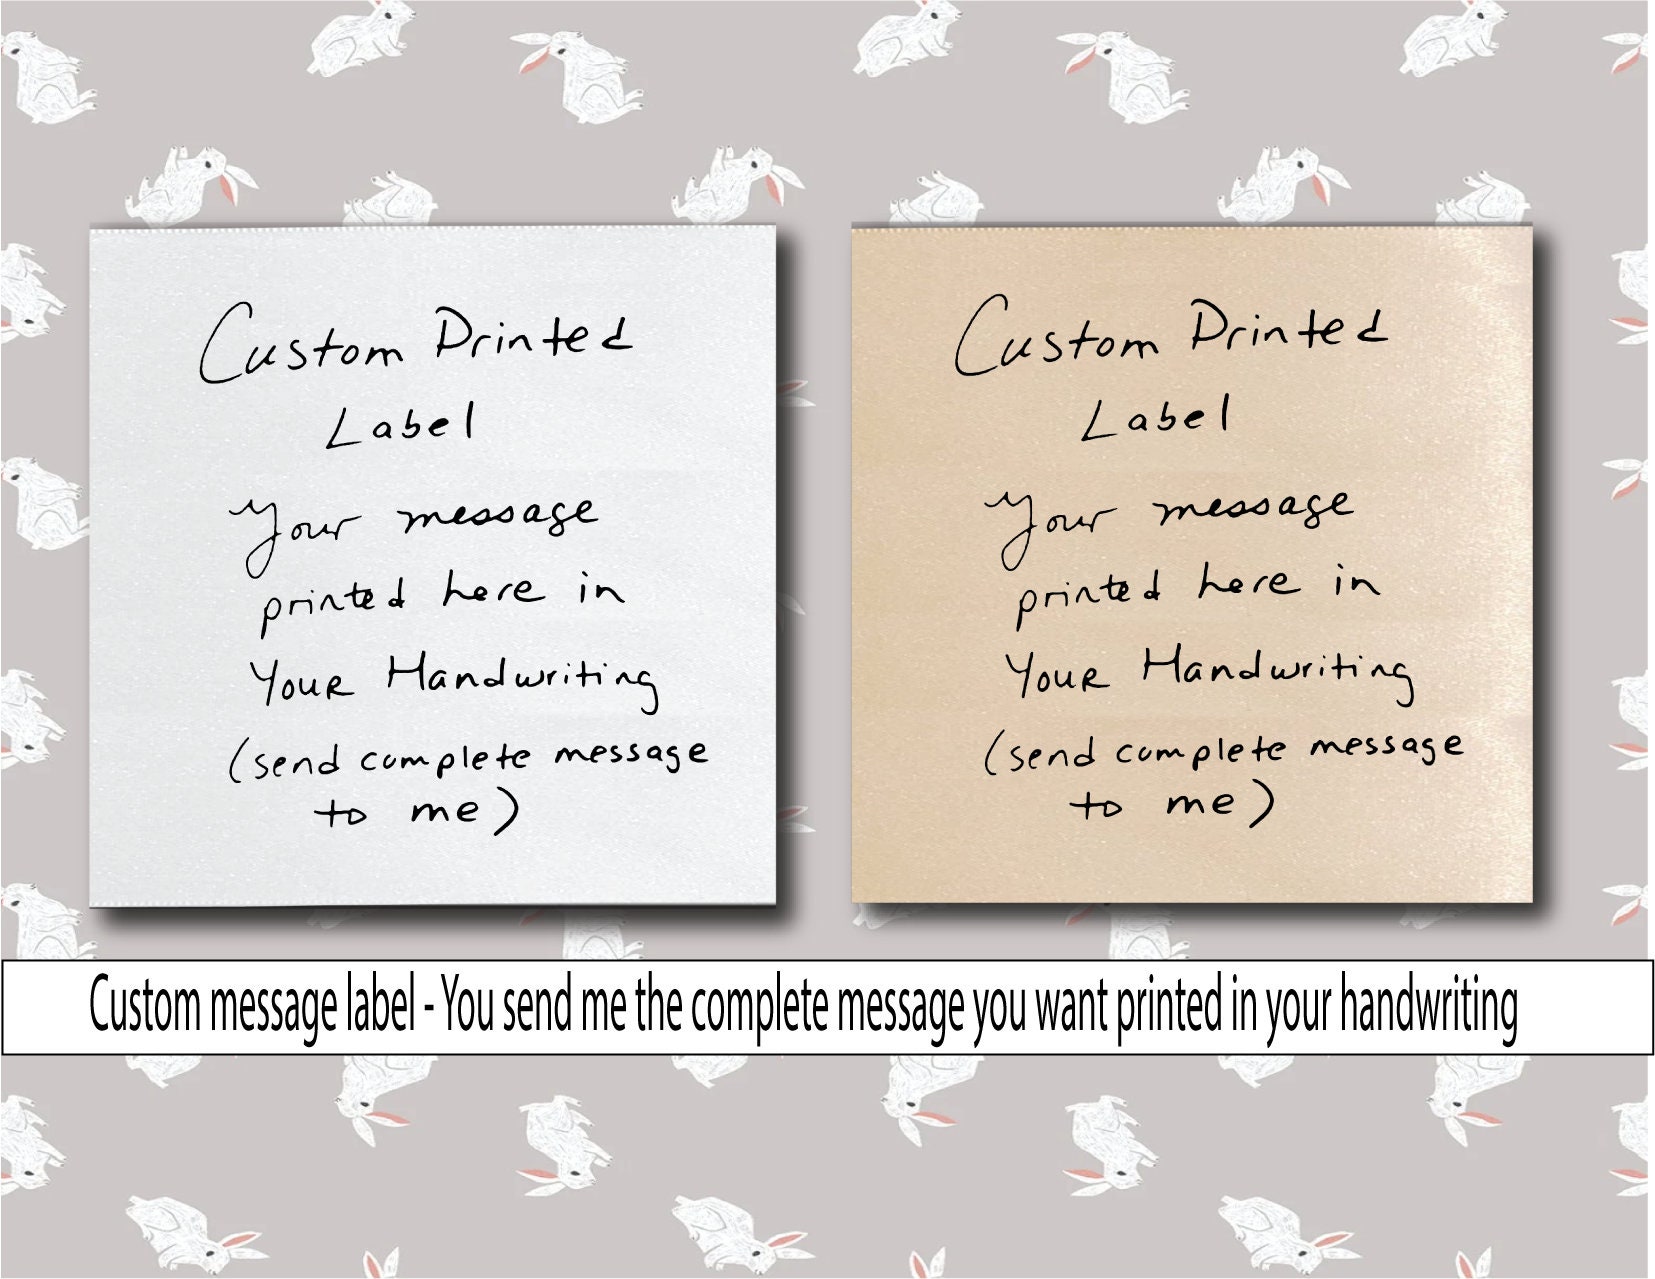 Custom Printed
Label
Your message
printed here in
Your Handwriting
(send complete message
to me)
Custom Printed
Label
Your message
printed here in
Your Handwriting
(send complete message
to me)
Custom message label - You send me the complete message you want printed in your handwriting